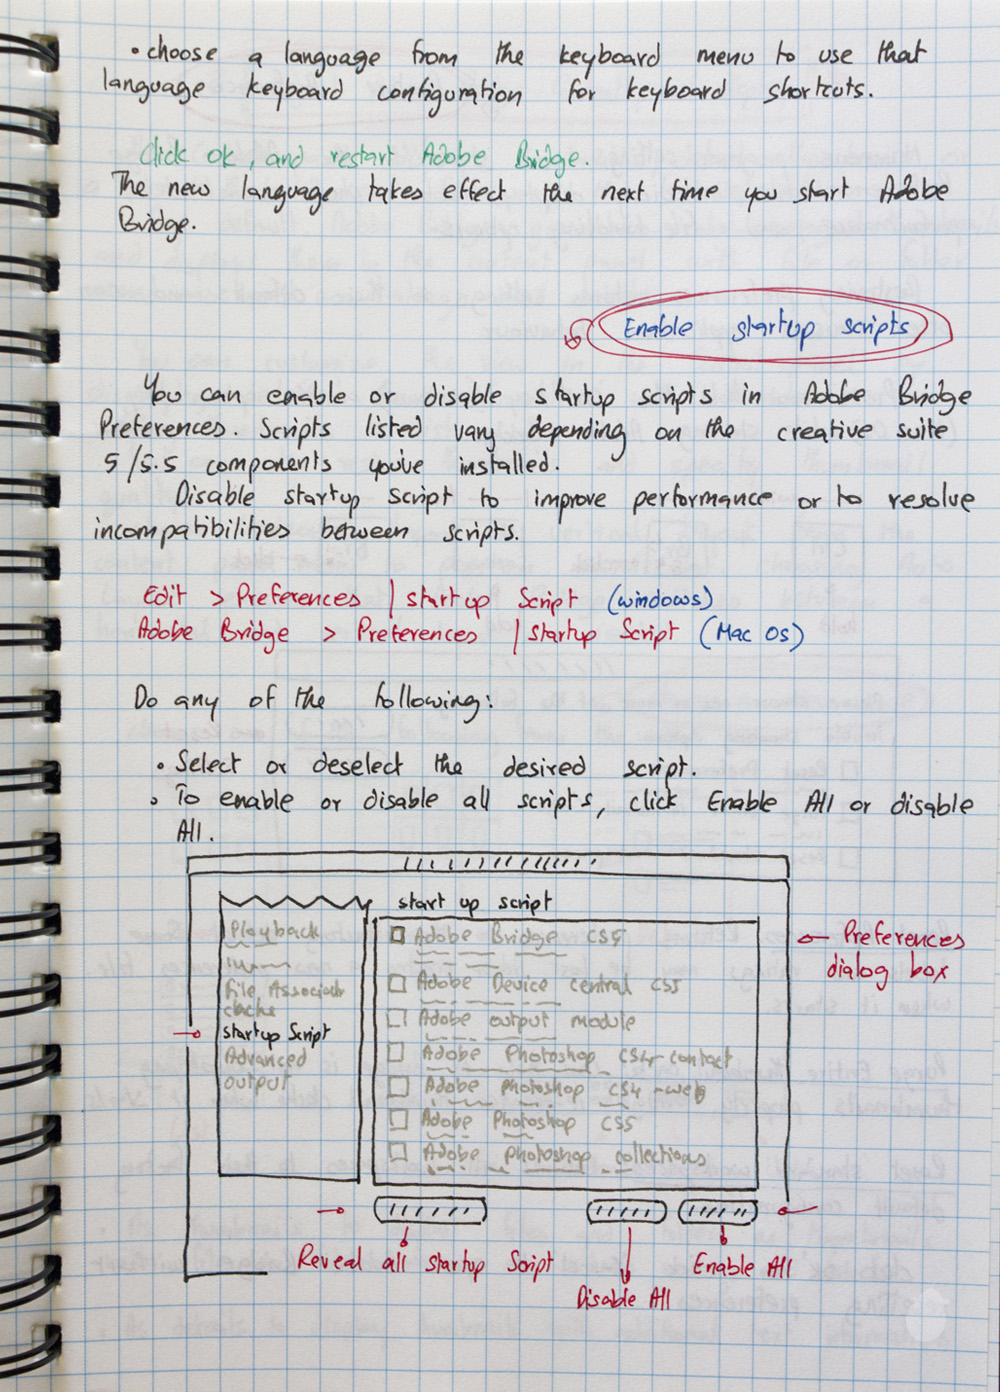 • choose a language from the keyboard menu to use that
language keyboard configuration for keyboard shortcuts.
Click ok, and restart Adobe Bridge.
The new language takes effect the next time you start Adobe
Bridge.
Enable startup scripts
You can enable or disable startup scripts in Adobe Bridge
Preferences. Scripts listed vary depending on the creative suite
5/5.5 components you've installed.
Disable startup script to improve performance or to resolve
incompatibilities between scripts.
Edit > Preferences | startup Script (windows)
Adobe Bridge > Preferences | startup Script (Mac OS)
Do any of the following:
• Select or deselect the desired script.
• To enable or disable all scripts, click Enable All or disable
All.
start up script
Playback
File Associatr
cache
startup Script
Advanced
output
Adobe Bridge CS5
Adobe Device central CS5
Adobe output module
Adobe Photoshop CS4 - contact
Adobe photoshop CS4 - web
Adobe Photoshop CS5
Adobe photoshop collections
Preferences
dialog box
Reveal all startup Script
Disable All
Enable All